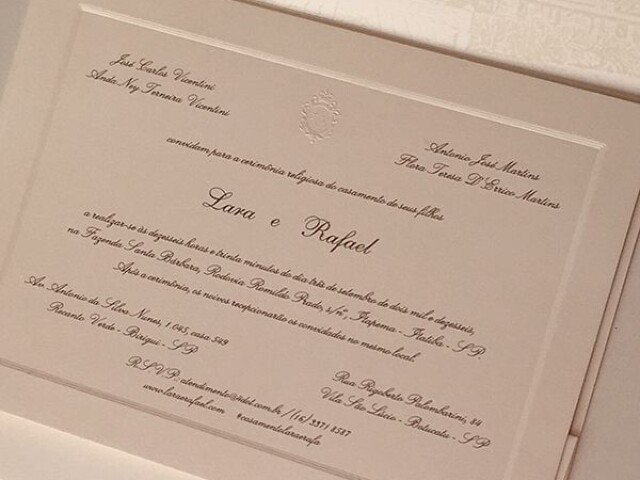 José Carlos Vicentini
Anda Ney Terneira Vicentini
Antonio José Martins
Flora Teresa D'Errico Martins
convidam para a cerimônia religiosa do casamento de seus filhos
Lara e Rafael
a realizar-se às dezesseis horas e trinta minutos do dia três de setembro de dois mil e dezesseis,
na Fazenda Santa Bárbara, Rodovia Romildo Prado, s/nº, Itapema - Itatiba - SP.
Após a cerimônia, os noivos recepcionarão os convidados no mesmo local.
Av. Antonio da Silva Nunes, 1.045, casa 549
Recanto Verde - Birigui - SP
Rua Rigoberto Palombarini, 84
Vila São Lúcio - Botucatu - SP
R.S.V.P. / (16) 3371 8587
www.laraerafael.com #casamentolaraerafa